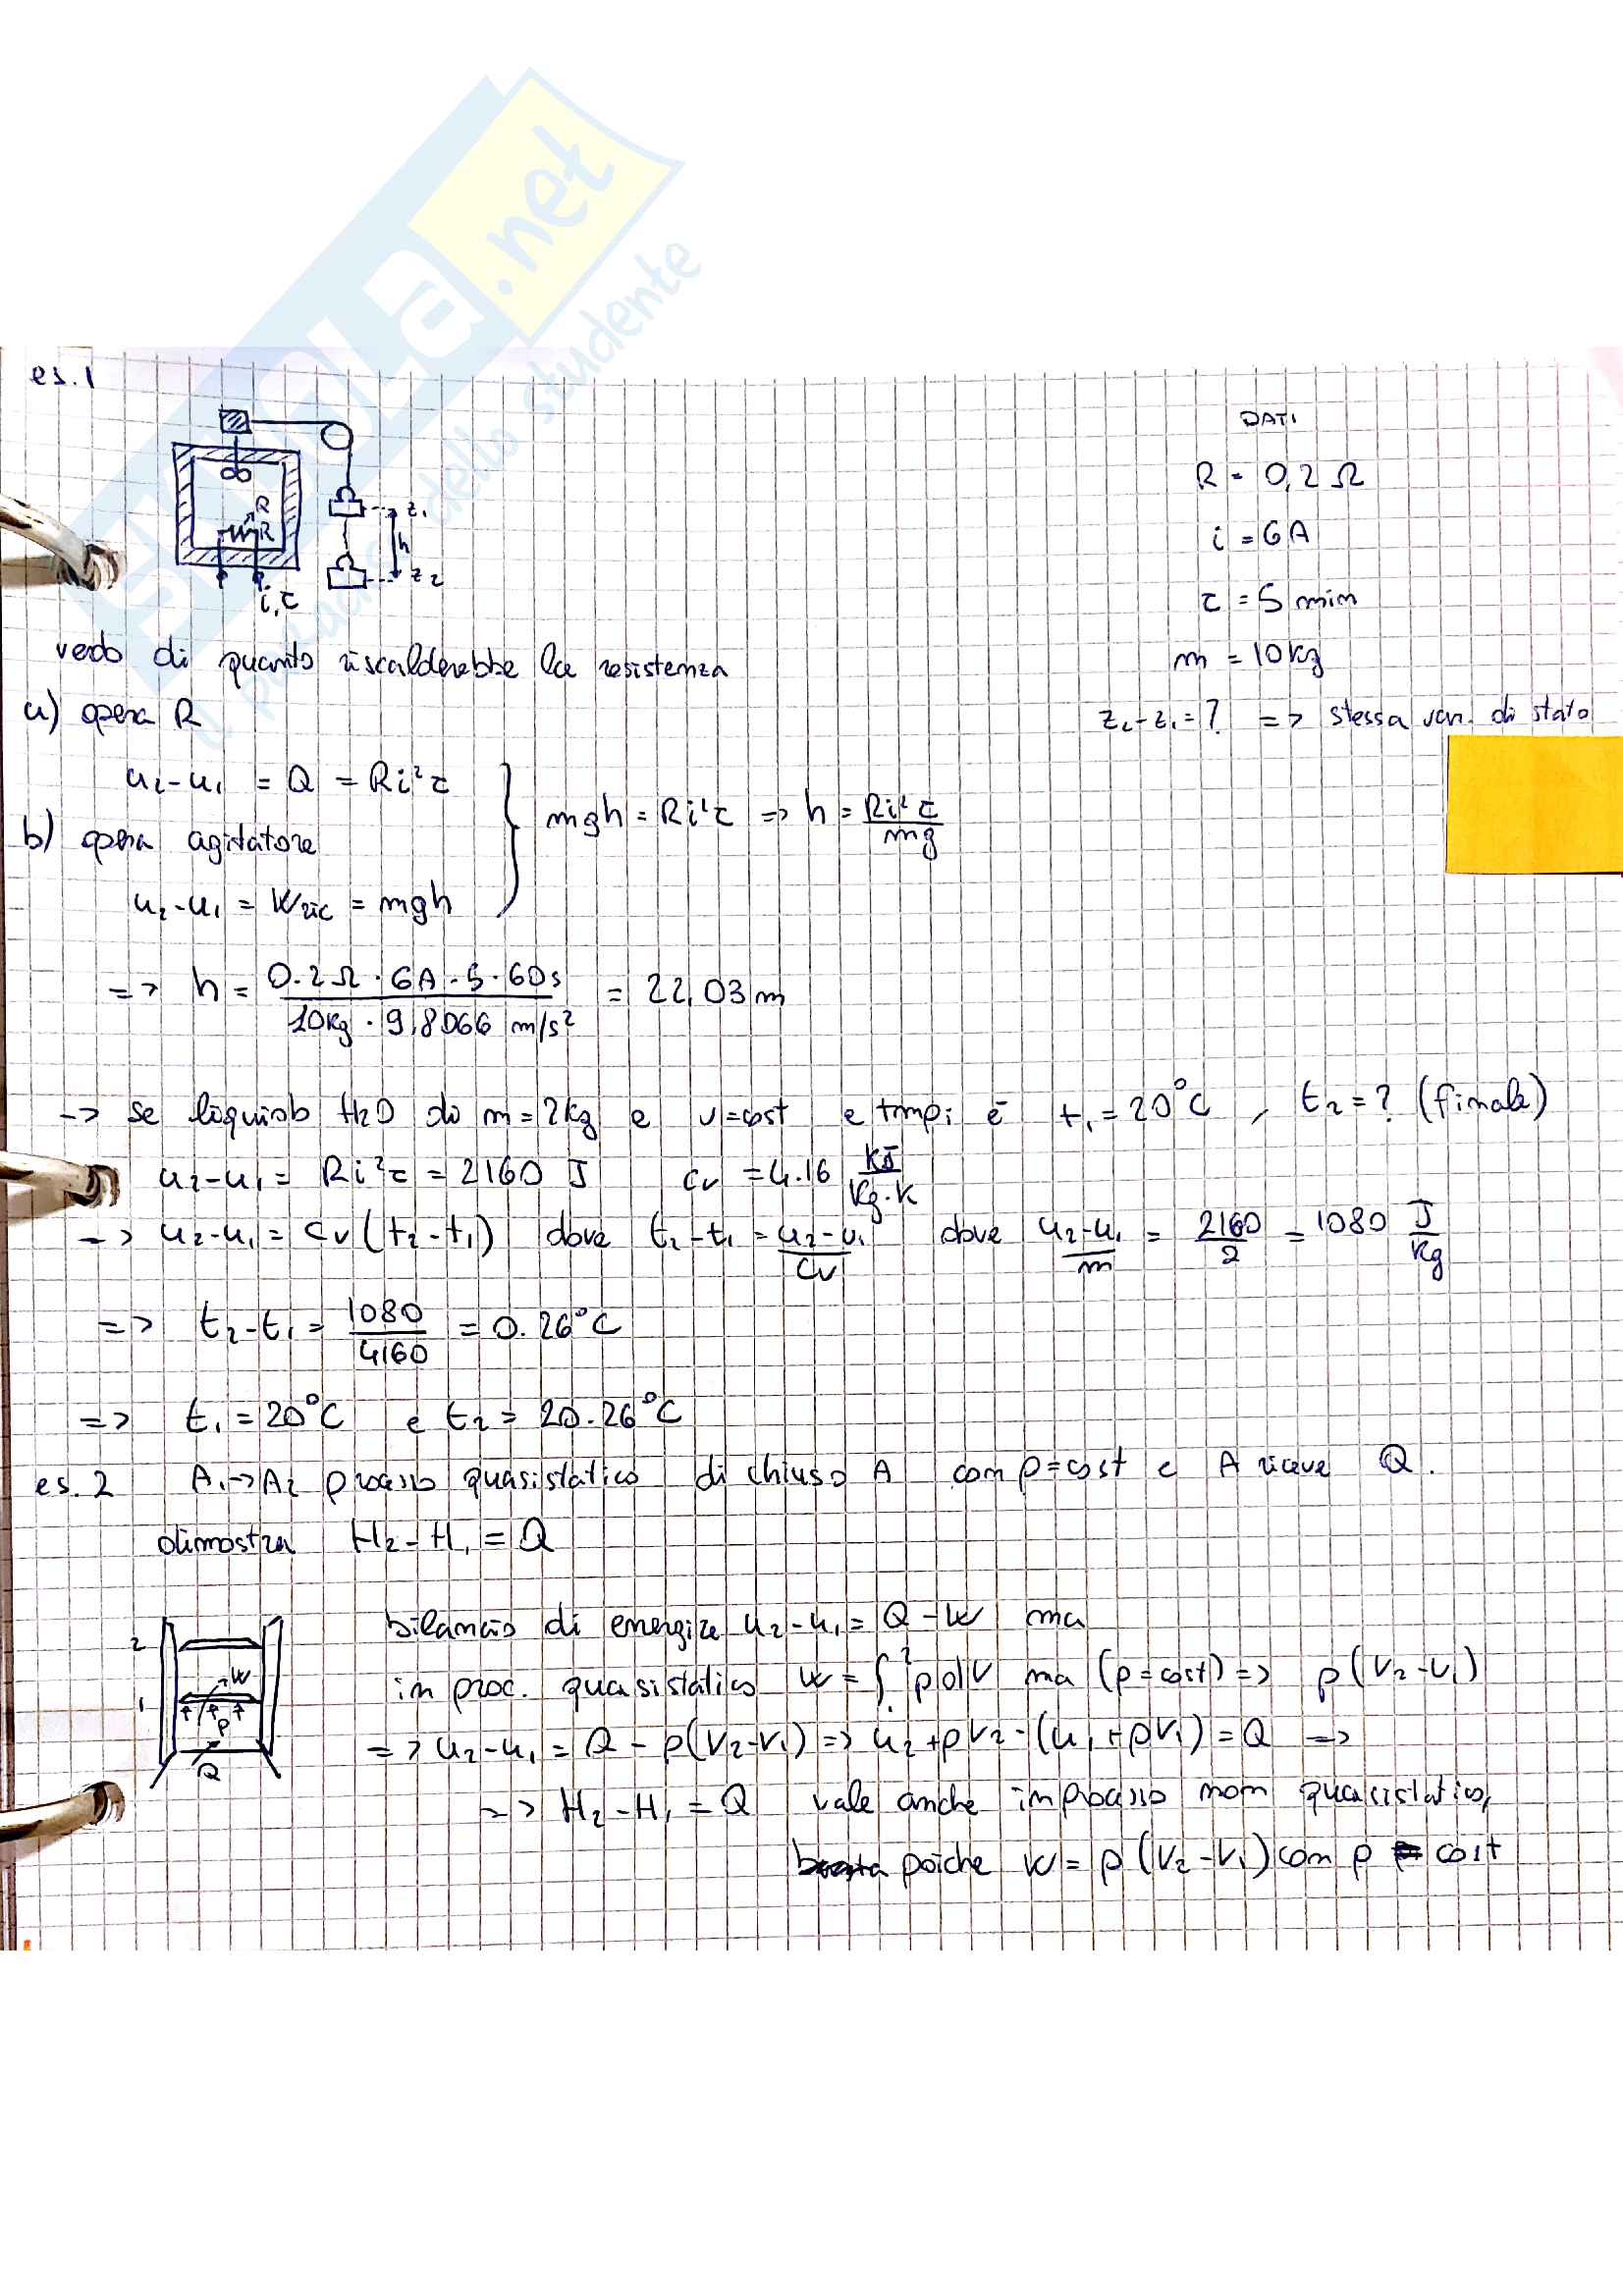 .net
es.1
DATI
R = 0,2 Ω
i = 6A
τ = 5 min
m = 10 kg
z₂-z₁ = ? => stessa var. di stato
R
R
i, τ
z₁
h
z₂
vedo di quanto riscalderebbe la resistenza
a) opera R
u₂-u₁ = Q = Ri²τ
b) opera agitatore
u₂-u₁ = W ric = mgh
mgh = Ri²τ => h = Ri²τ / mg
=> h = 0.2Ω · 6A · 5 · 60s / 10kg · 9,8066 m/s² = 22,03 m
-> se liquido H2O di m = 2kg e v=cost e tmp i è t₁ = 20°C , t₂ = ? (finale)
u₂-u₁ = Ri²τ = 2160 J cv = 4.16 kJ / kg·K
-> u₂-u₁ = cv(t₂-t₁) dove t₂-t₁ = u₂-u₁ / cv dove u₂-u₁ / m = 2160 / 2 = 1080 J / kg
=> t₂-t₁ = 1080 / 4160 = 0.26°C
=> t₁ = 20°C e t₂ = 20.26°C
es. 2 A₁->A₂ processo quasistatico di chiuso A con p=cost e A riceve Q.
dimostra H₂-H₁ = Q
2
1
W
P
Q
bilancio di energia u₂-u₁ = Q-W ma
in proc. quasistatico W = ∫₁² p dV ma (p=cost) => p(V₂-V₁)
=> u₂-u₁ = Q - p(V₂-V₁) => u₂+pV₂-(u₁+pV₁) = Q =>
=> H₂-H₁ = Q vale anche in processo non quasistatico,
poiche W = p(V₂-V₁) con p cost